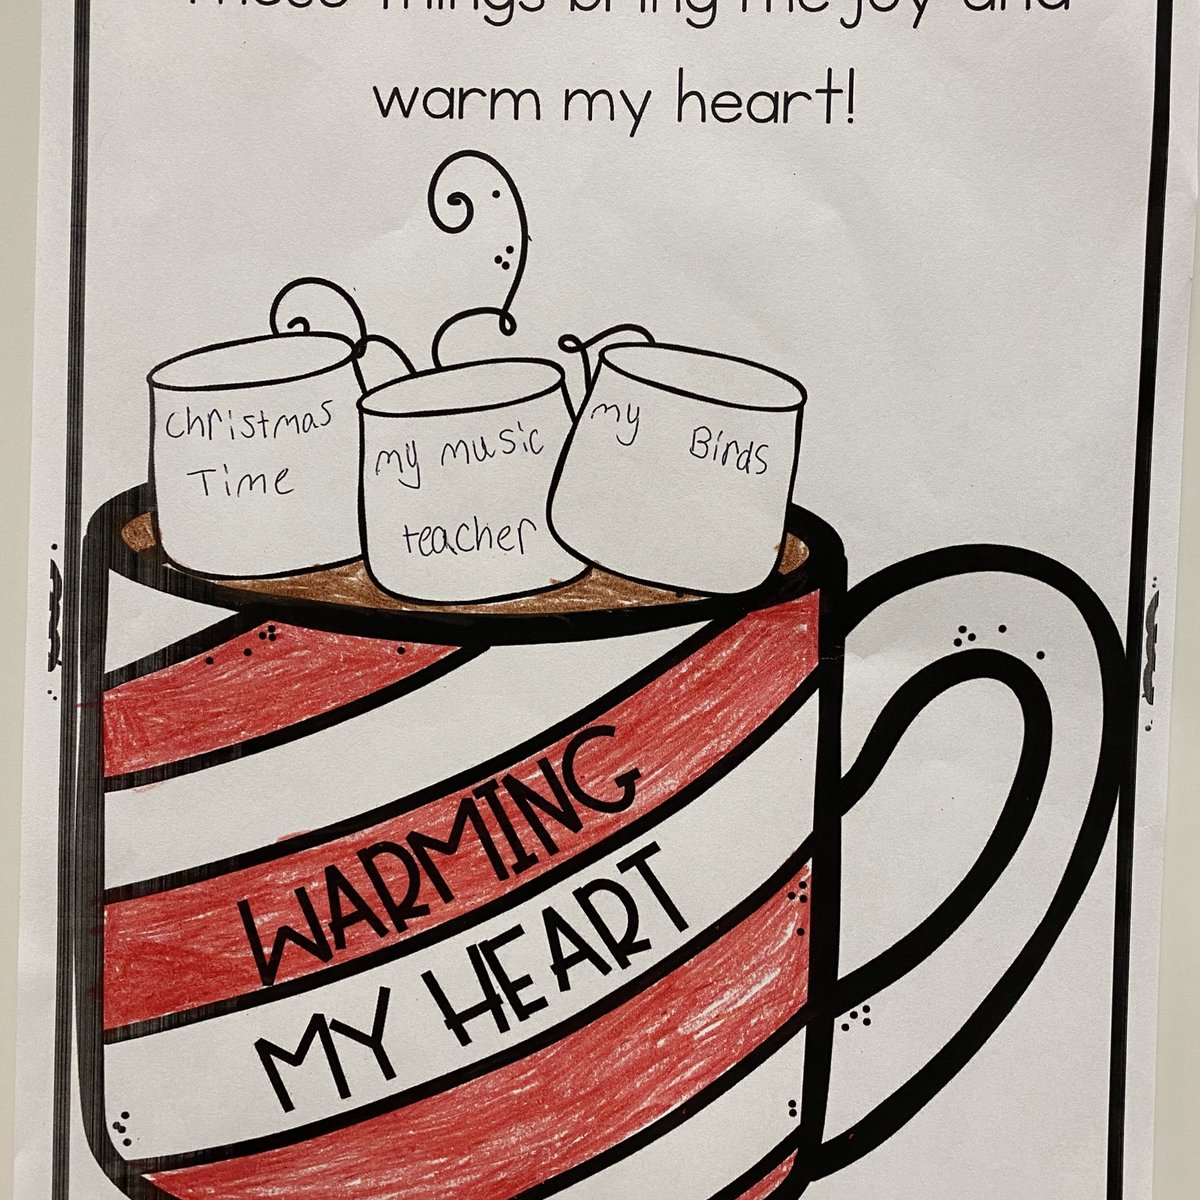 These things bring me joy and
warm my heart!
christmas
Time
my music
teacher
my Birds
WARMING
MY HEART